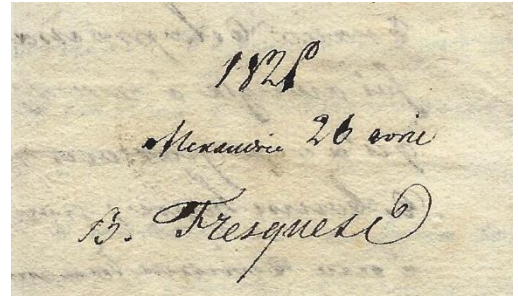 182
Alexandrie 26 avril
B. Fresquese